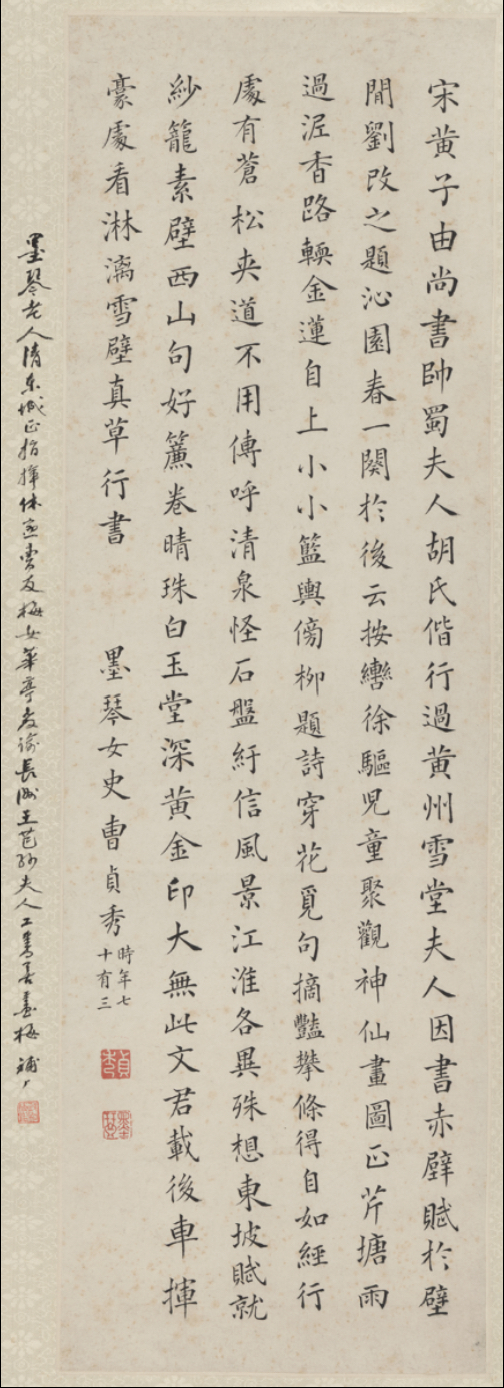 宋黄子由尚書帥蜀夫人胡氏偕行過黄州雪堂夫人因書赤壁賦於壁
間劉改之題沁園春一闋於後云按轡徐驅児童聚觀神仙畫圖正芹塘雨
過泥香路輭金蓮自上小小籃輿傍柳題詩穿花覓句摘豔攀條得自如經行
處有蒼松夾道不用傳呼清泉怪石盤紆信風景江淮各異殊想東坡賦就
紗籠素壁西山句好簾卷晴珠白玉堂深黄金印大無此文君載後車揮
豪處看淋漓雪壁真草行書
墨琴女史曹貞秀時年七十有三
貞秀
墨琴
墨琴老人清東城正指揮休寧雯友梅女華亭長洲王芑孫夫人工書善畫梅